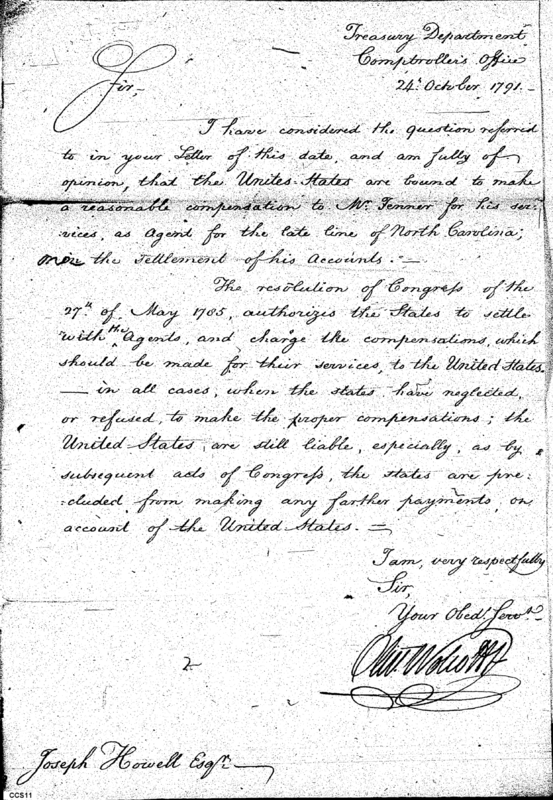 Treasury Department
Comptroller's Office
24th October 1791.
Sir,
I have considered the question referred
to in your Letter of this date, and am fully of
opinion, that the United States are bound to make
a reasonable compensation to Mr. Fenner for his ser-
vices, as Agent for the late line of North Carolina;
on the settlement of his Accounts. —
The resolution of Congress of the
27th of May 1785, authorizes the States to settle
with the Agents, and charge the compensations, which
should be made for their services, to the United States
— in all cases, when the states have neglected,
or refused, to make the proper compensations; the
United States, are still liable, especially, as by
subsequent acts of Congress, the states are pre:
:cluded from making any farther payments, on
account of the United States. =
I am, very respectfully
Sir,
Your Obed. Servt.
Oliv. Wolcott Jr
2
Joseph Howell Esqr.
CCS11